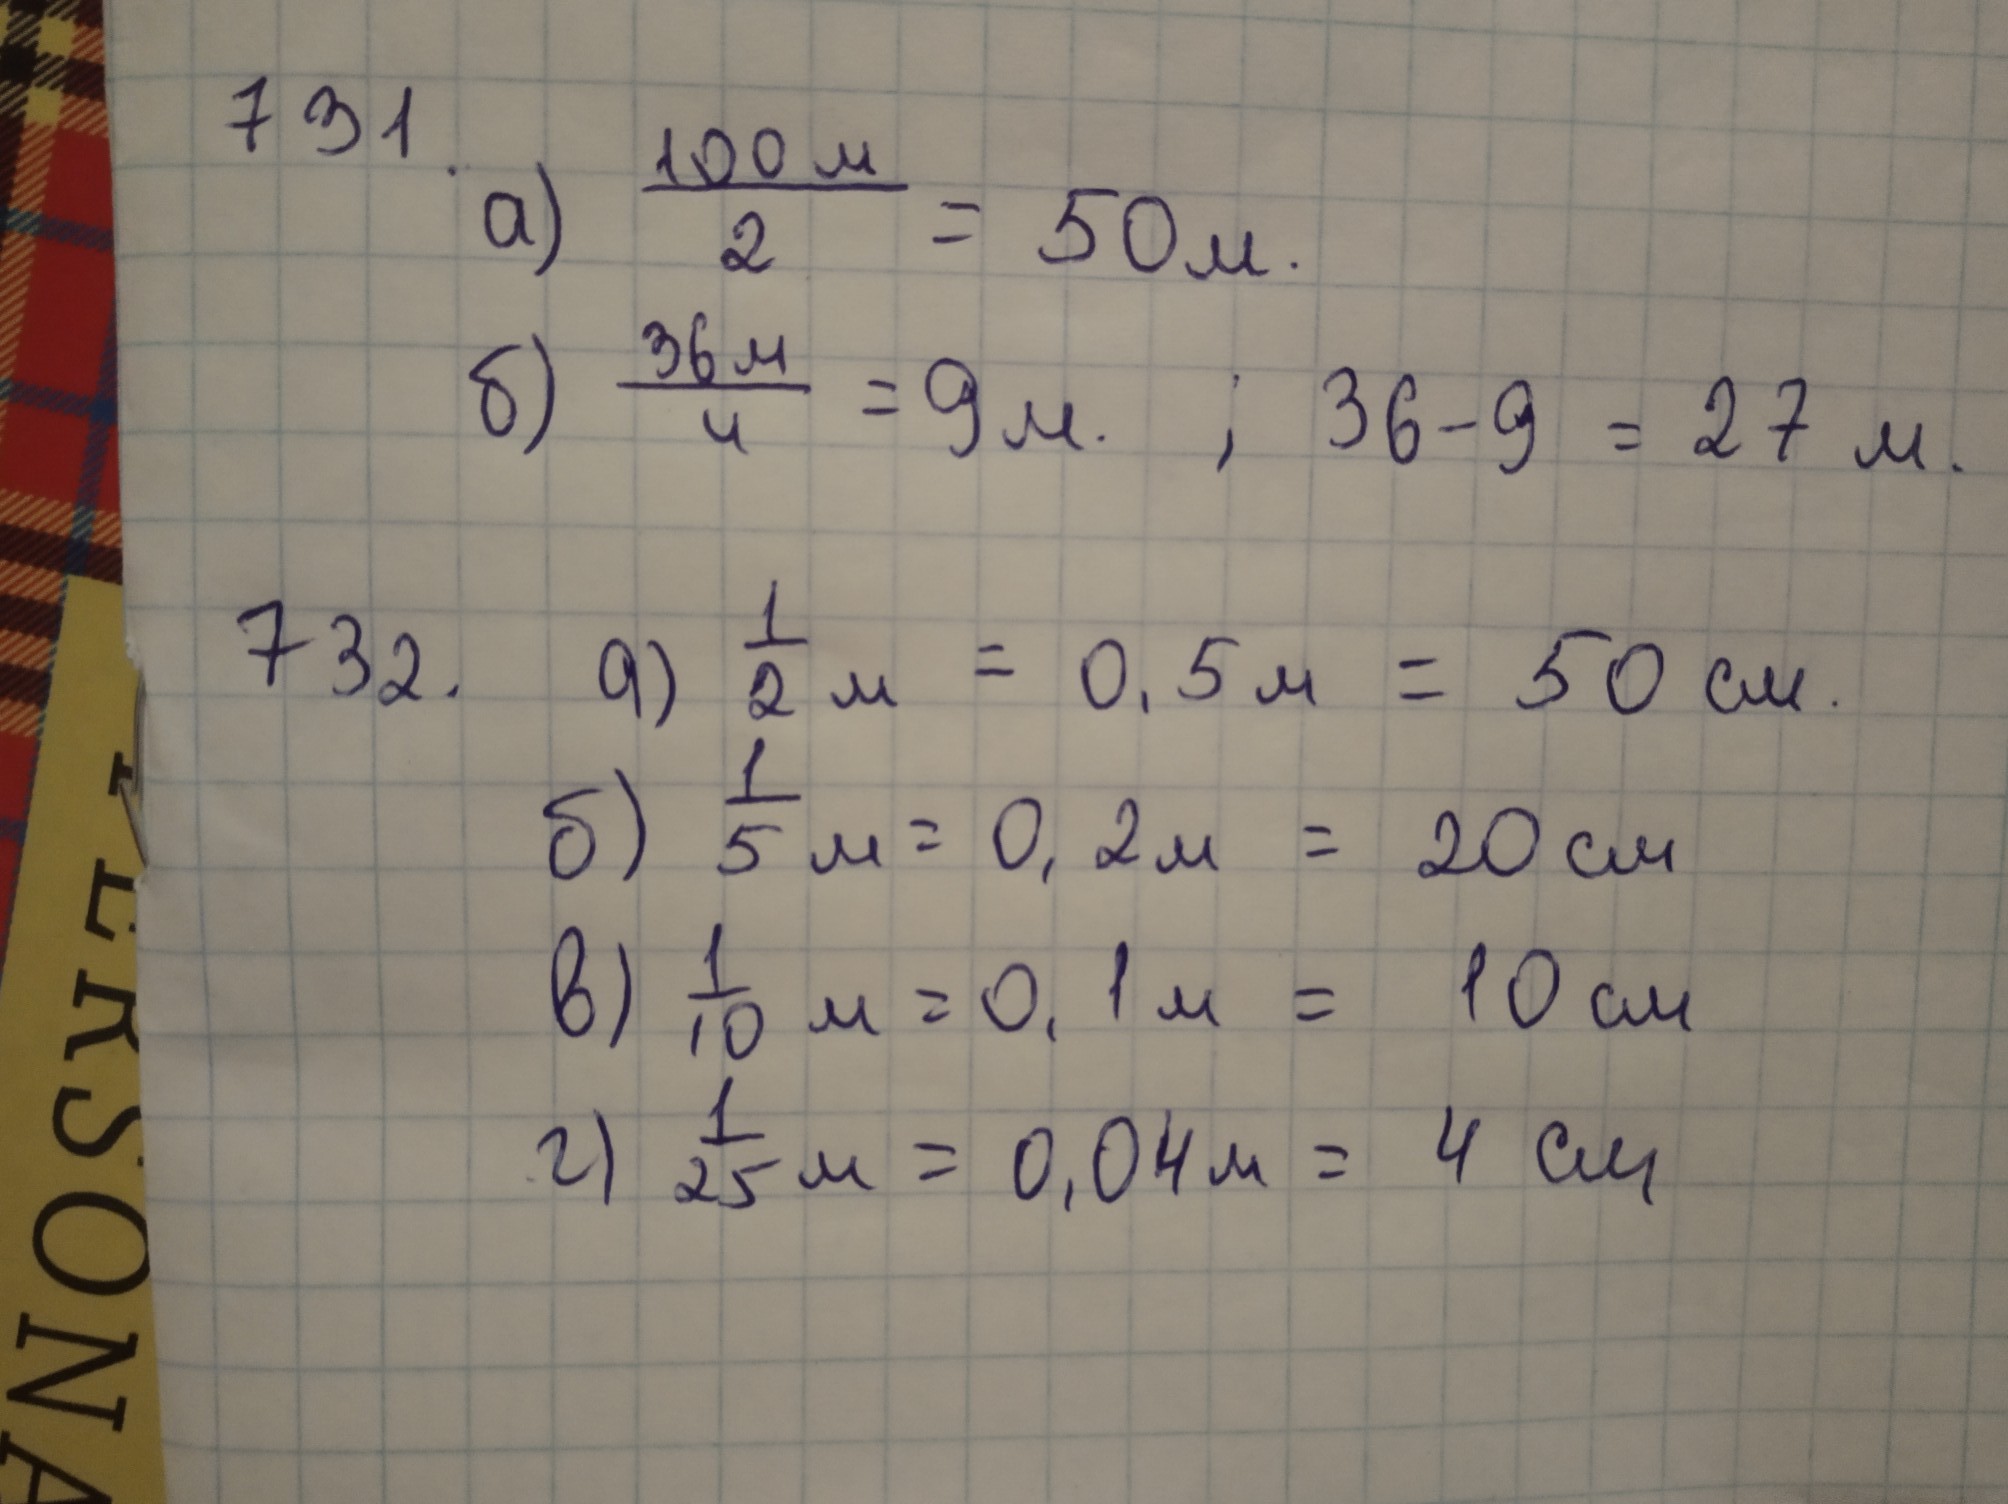 731.
а) 100 м / 2 = 50 м.
б) 36 м / 4 = 9 м. ; 36 - 9 = 27 м.
732. а) 1/2 м = 0,5 м = 50 см.
б) 1/5 м = 0,2 м = 20 см
в) 1/10 м = 0,1 м = 10 см
г) 1/25 м = 0,04 м = 4 см
ERSONA